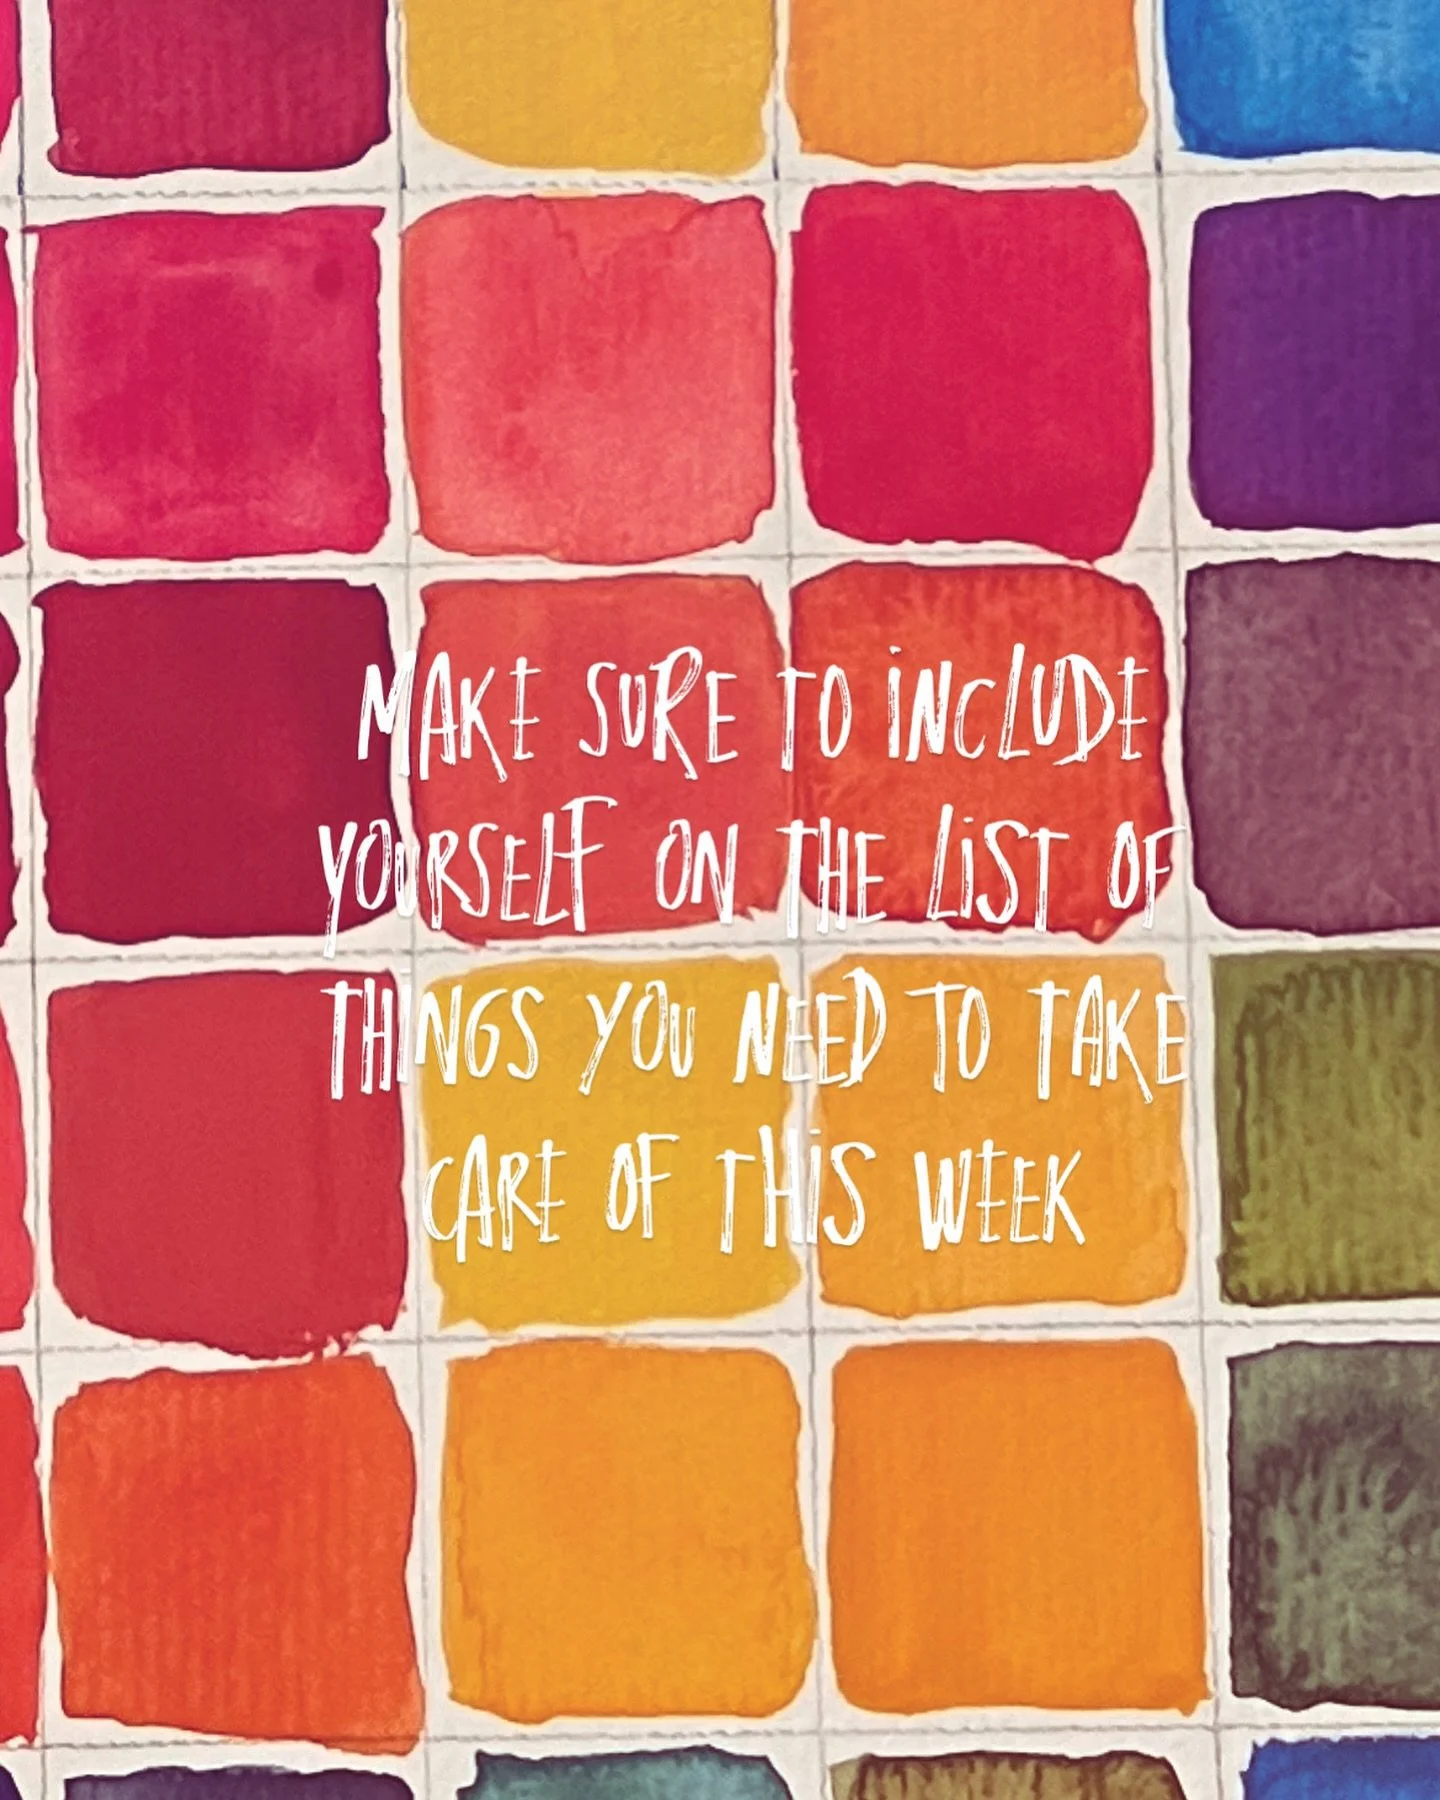 MAKE SURE TO INCLUDE
YOURSELF ON THE LIST OF
THINGS YOU NEED TO TAKE
CARE OF THIS WEEK